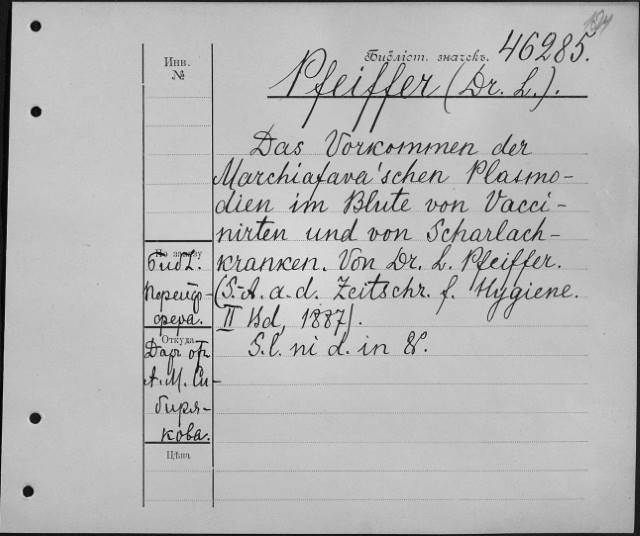 Библіот. значекъ. 46285.
Инв.
№
Pfeiffer (Dr. L.).
Das Vorkommen der
Marchiafava'schen Plasmo-
dien im Blute von Vacci-
nirten und von Scharlach-
kranken. Von Dr. L. Pfeiffer.
(S.-A. a. d. Zeitschr. f. Hygiene.
II Bd, 1887).
S. l. ni d. in 8°.
По заказу
Библ.
фера.
Откуда
Даръ отъ
А. М. Си-
биря-
кова.
Цѣна